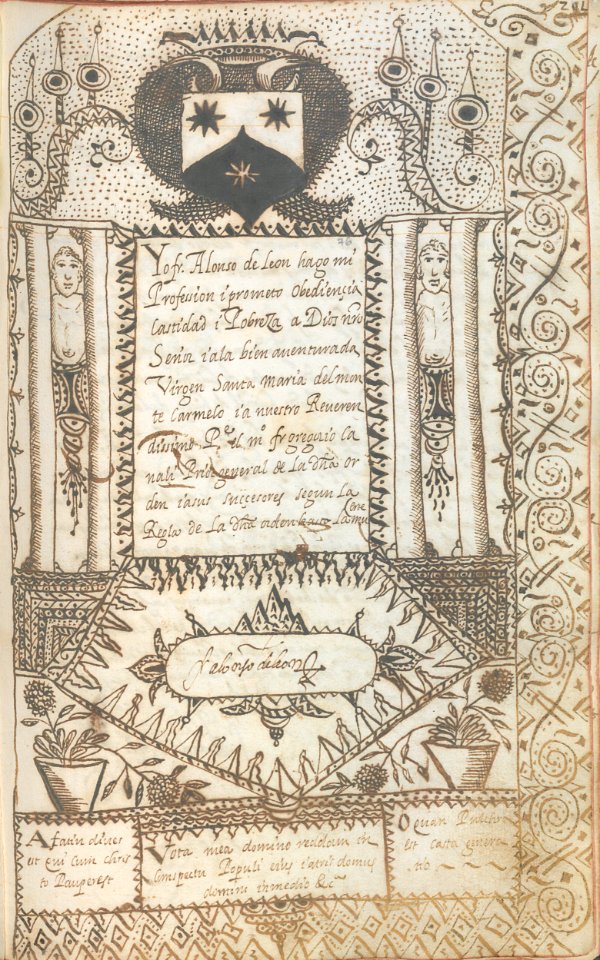 201
76
Yo fr. Alonso de Leon hago mi
Profession i prometo Obediençia
Castidad i Pobreza a Dios nro
Señor i a la bien aventurada
Virgen Santa Maria del mon
te Carmelo i a nuestro Reveren
dissimo Pe. el mo fr gregorio Ca
nali Prior general de La dha or
den i a sus successores segun La
Regla de La dha orden hasta La mu
erte
fr alonso de leon
A fatin dives
est qui cum chris
to Pauperest
Vota mea domino reddam in
Conspectu Populi eius i atriis domus
domini in medio &c
O quan Pulchra
est casta genera
tio